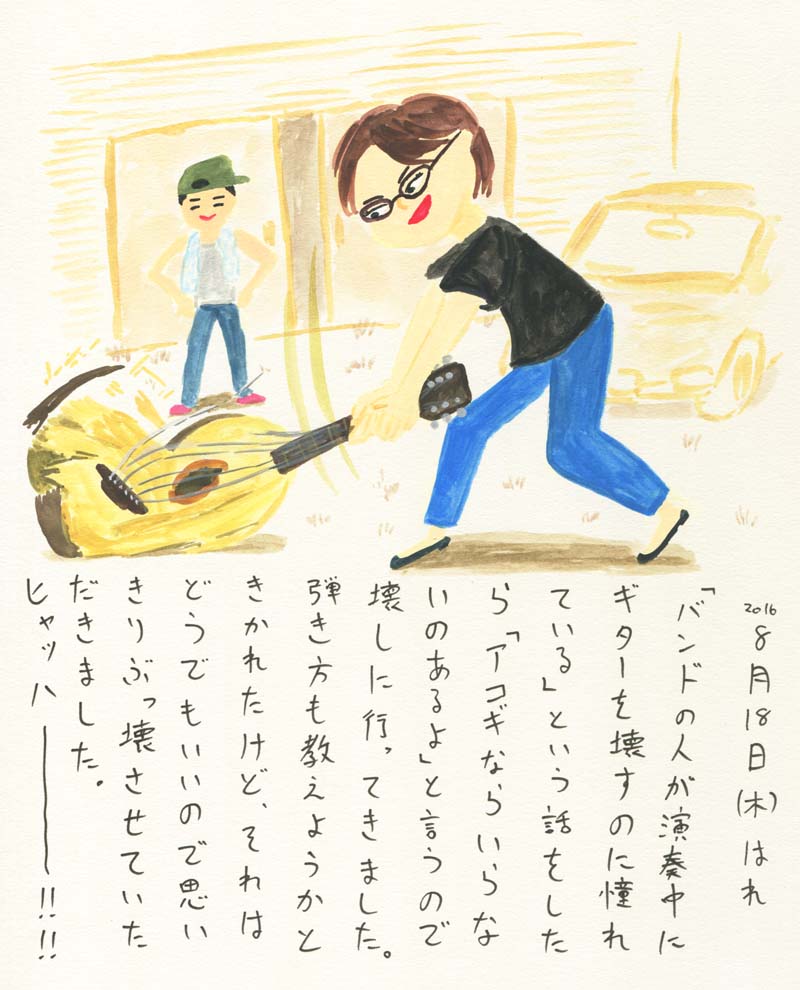 2016 8月18日(木)はれ
「バンドの人が演奏中に
ギターを壊すのに憧れ
ている」という話をした
ら「アコギならいらな
いのあるよ」と言うので
壊しに行ってきました。
弾き方も教えようかと
きかれたけど、それは
どうでもいいので思い
きりぶっ壊させていた
だきました。
ヒャッハー!!!!